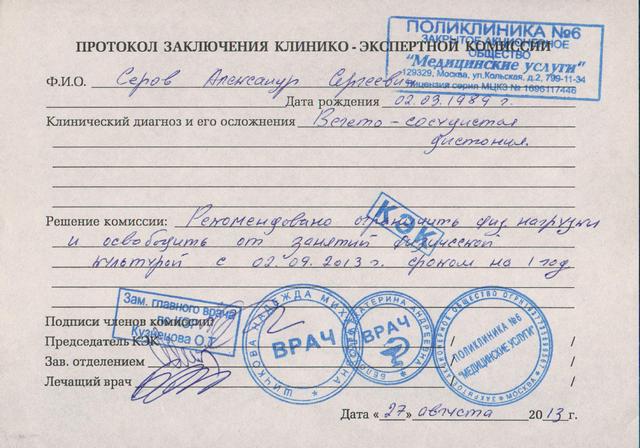 ПОЛИКЛИНИКА №6
ЗАКРЫТОЕ АКЦИОНЕРНОЕ
ОБЩЕСТВО
"Медицинские услуги"
129329, Москва, ул.Кольская, д.2, 799-11-34
Лицензия серия МЦКЗ № 1696117446
ПРОТОКОЛ ЗАКЛЮЧЕНИЯ КЛИНИКО - ЭКСПЕРТНОЙ КОМИССИИ
Ф.И.О. Серов Александр Сергеевич
Дата рождения 02.03.1989 г.
Клинический диагноз и его осложнения Вегето-сосудистая
дистония.
Решение комиссии: Рекомендовано ограничить физ. нагрузки
КЭК
и освободить от занятий физической
культурой с 02.09.2013 г. сроком на 1 год
Зам. главного врача
по КЭР
Кузнецова О.Т.
Подписи членов комиссии
Председатель КЭК / /
Зав. отделением /
Лечащий врач /
ШИЧКОВА НАДЕЖДА МИХ
ВРАЧ
ЕКАТЕРИНА АНДРЕЕВНА
ВРАЧ
ЗАКРЫТОЕ АКЦИОНЕРНОЕ ОБЩЕСТВО
ПОЛИКЛИНИКА №6
"МЕДИЦИНСКИЕ УСЛУГИ"
МОСКВА
Дата «27» августа 2013 г.